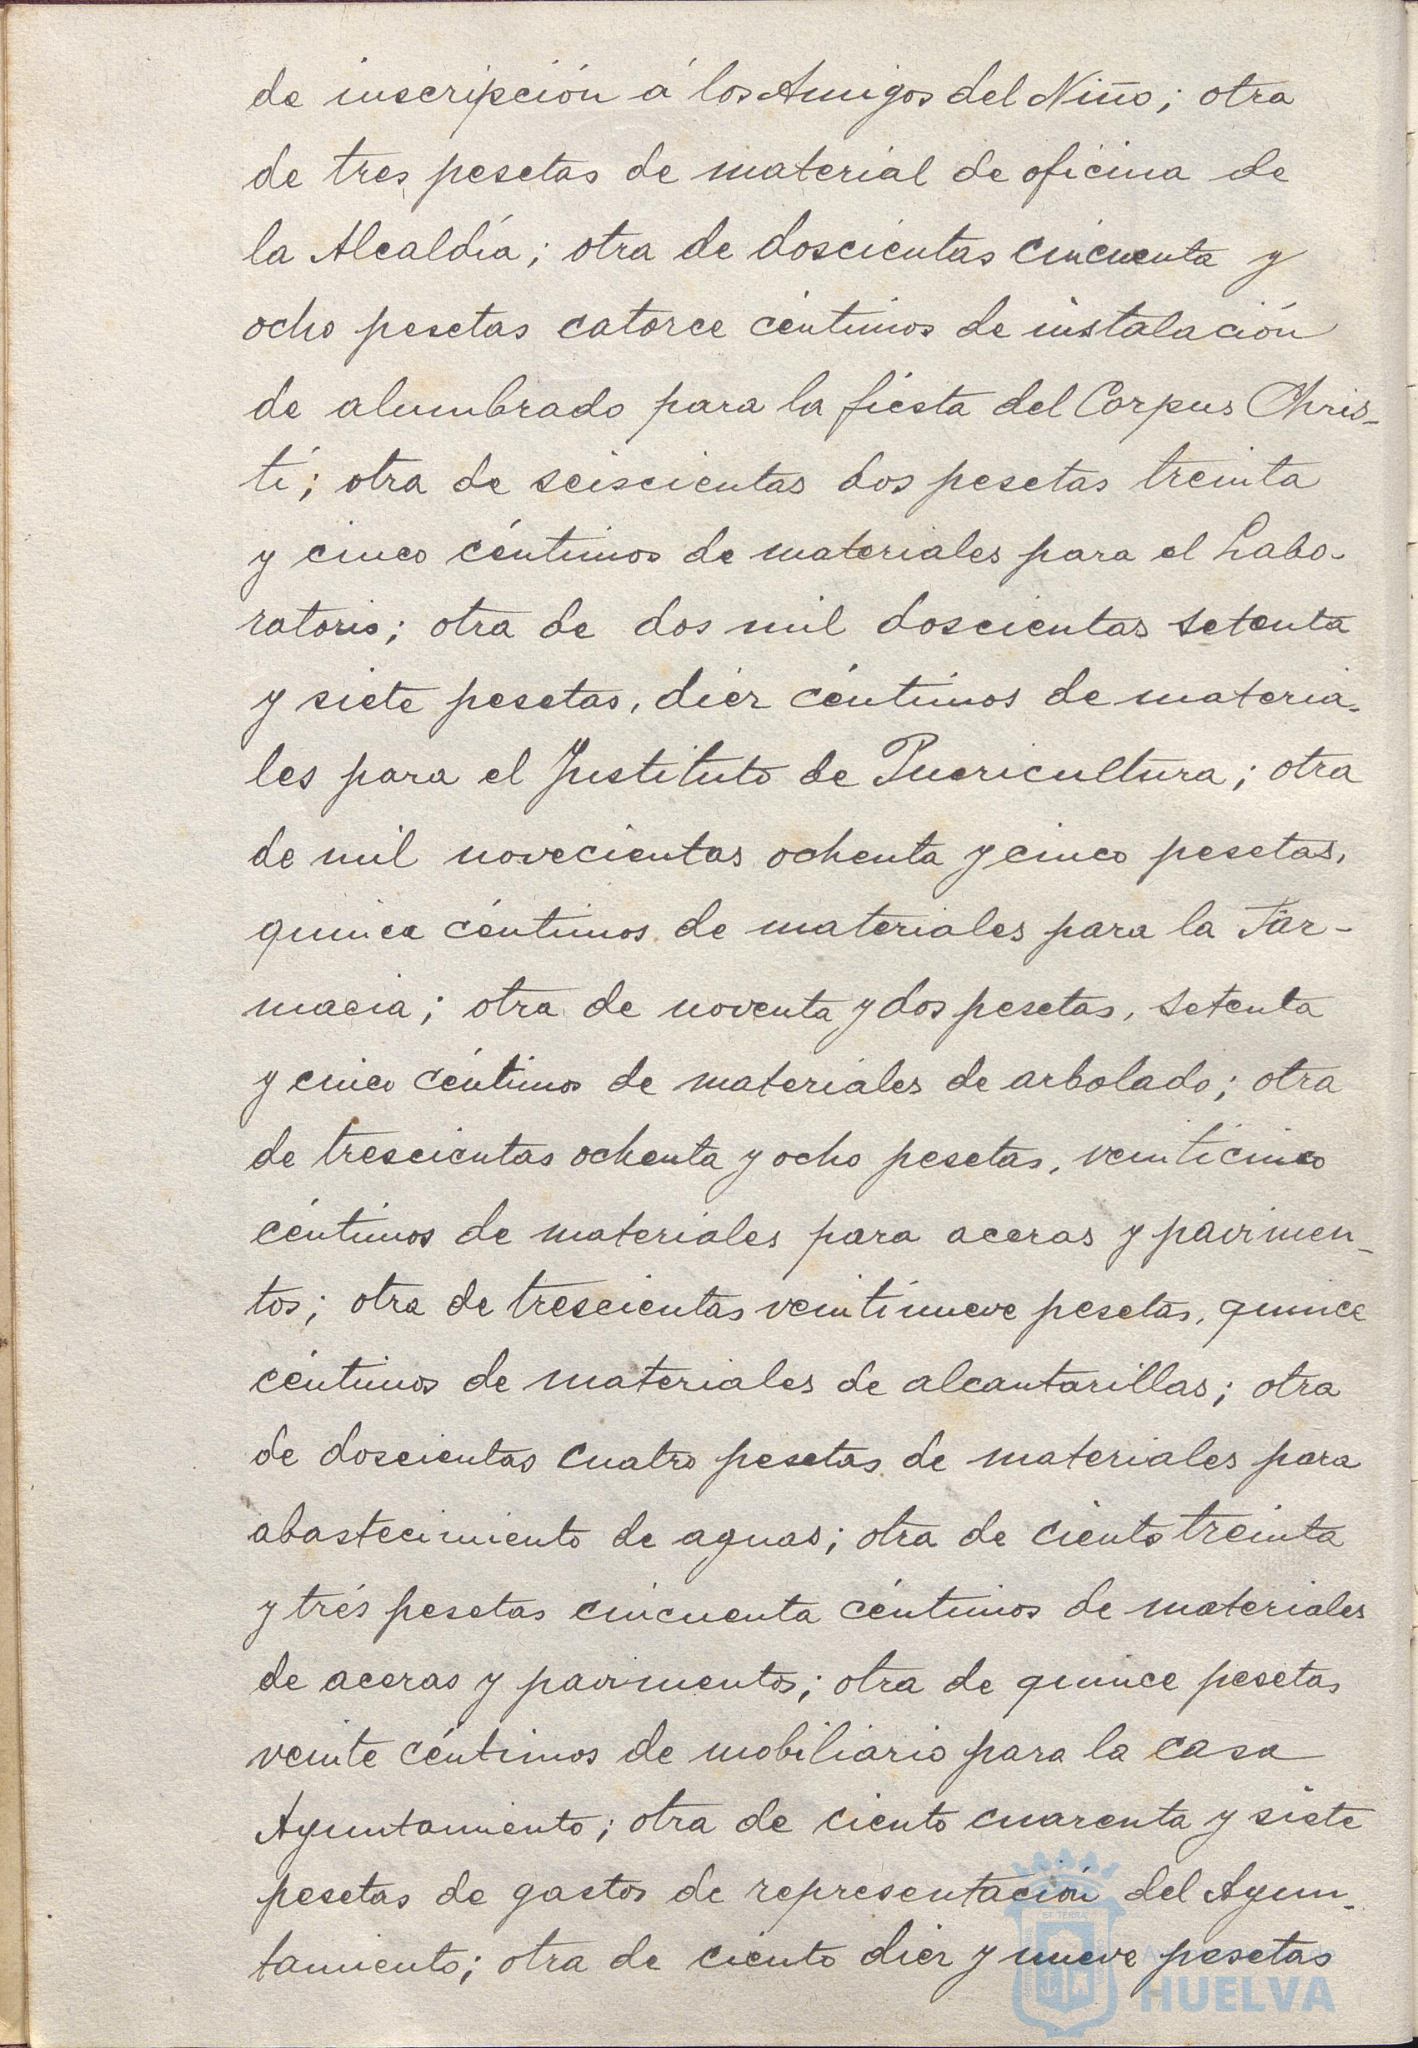 de inscripción á los Amigos del Niño; otra
de tres pesetas de material de oficina de
la Alcaldía; otra de doscientas cincuenta y
ocho pesetas catorce céntimos de instalación
de alumbrado para la fiesta del Corpus Chris-
ti; otra de seiscientas dos pesetas treinta
y cinco céntimos de materiales para el Labo-
ratorio; otra de dos mil doscientas setenta
y siete pesetas, diez céntimos de materia-
les para el Instituto de Puericultura; otra
de mil novecientas ochenta y cinco pesetas,
quince céntimos de materiales para la Far-
macia; otra de noventa y dos pesetas, setenta
y cinco céntimos de materiales de arbolado; otra
de trescientas ochenta y ocho pesetas, veinticinco
céntimos de materiales para aceras y pavimen-
tos; otra de trescientas veintinueve pesetas, quince
céntimos de materiales de alcantarillas; otra
de doscientas cuatro pesetas de materiales para
abastecimiento de aguas; otra de ciento treinta
y trés pesetas cincuenta céntimos de materiales
de aceras y pavimentos; otra de quince pesetas
veinte céntimos de mobiliario para la casa
Ayuntamiento; otra de ciento cuarenta y siete
pesetas de gastos de representación del Ayun-
tamiento; otra de ciento diez y nueve pesetas
HUELVA